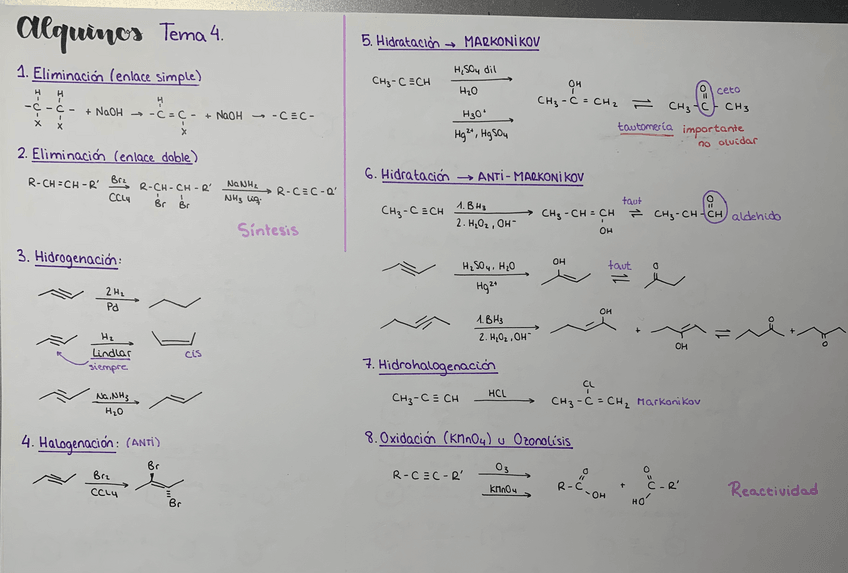 Alquinos Tema 4.
1. Eliminación (enlace simple)
H H
-C-C- + NaOH → -C=C- + NaOH → -C≡C-
X X
H
X
2. Eliminación (enlace doble)
R-CH=CH-R' Br₂ CCl₄ R-CH-CH-R' NaNH₂ NH₃ liq. R-C≡C-R'
Br Br
Síntesis
3. Hidrogenación:
2H₂
Pd
H₂
Lindlar
siempre
cis
Na,NH₃
H₂O
4. Halogenación: (ANTI)
Br₂
CCl₄
Br
Br
5. Hidratación → MARKONIKOV
CH₃-C≡CH
H₂SO₄ dil
H₂O
H₃O⁺
Hg²⁺, HgSO₄
OH
CH₃-C=CH₂ ⇌ CH₃-C-CH₃
O
ceto
tautomería importante
no olvidar
6. Hidratación → ANTI-MARKONIKOV
CH₃-C≡CH
1. BH₃
2. H₂O₂, OH⁻
CH₃-CH=CH
OH
taut
⇌
O
CH₃-CH-CH aldehido
H₂SO₄, H₂O
Hg²⁺
OH
taut
⇌
O
1. BH₃
2. H₂O₂, OH⁻
OH
+
OH
⇌
O
+
O
7. Hidrohalogenación
CH₃-C≡CH
HCL
CL
CH₃-C=CH₂ Markonikov
8. Oxidación (KMnO₄) u Ozonolisis
R-C≡C-R'
O₃
KMnO₄
O
R-C
OH
+
O
C-R'
HO
Reactividad